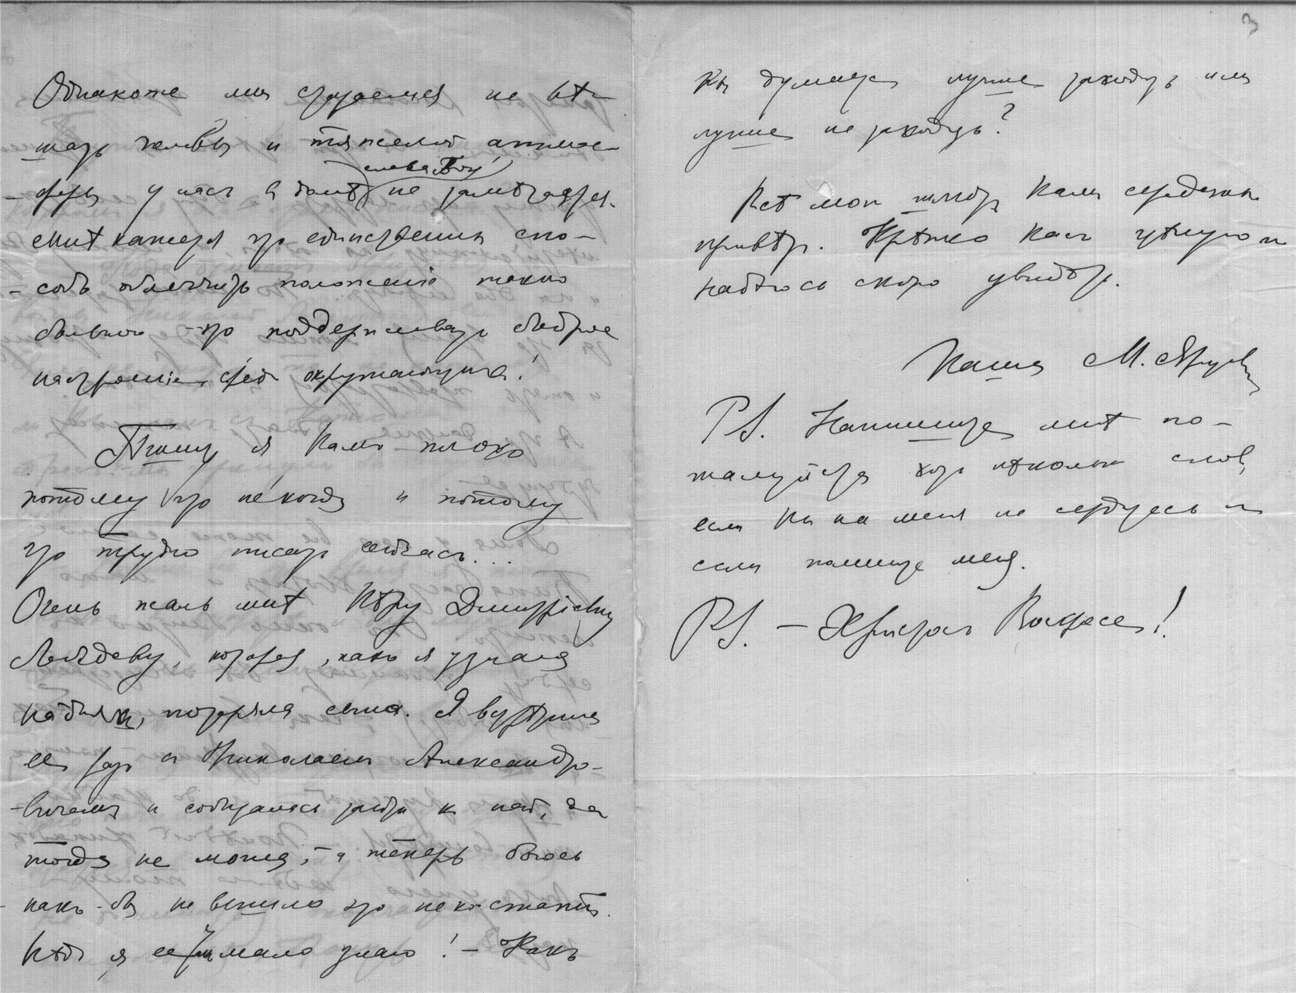 Однакоже мы стараемся не вѣ-
шать головы и тяжелой атмос-
слава Богу
феры у насъ в домѣ не замѣчается.
Мнѣ кажется что единственный спо-
собъ облегчить положеніе тяжко
больного – это поддерживать бодрое
настроеніе среди окружающихъ!
Пишу я Вамъ плохо
потому что некогда и потому
что трудно писать сейчасъ...
Очень жаль мнѣ Вѣру Дмитріевну
Лебедеву, которая, какъ я узнала
на дняхъ, потеряла сына. Я встрѣтила
ее разъ с Николаемъ Александро-
вичемъ и собиралась зайти к ней, да
тогда не могла, а теперь боюсь
какъ-бы не вышло что некстати.
Вѣдь я ее мало знаю! – Какъ
3
Вы думаете лучше заходить или
лучше не заходить?
Всѣ мои шлютъ Вамъ сердечный
привѣтъ. Крѣпко Васъ цѣлую и
надѣюсь скоро увидѣть.
Ваша М.
PS. Напишите мнѣ по-
жалуйста хоть нѣсколько словъ,
если Вы на меня не сердитесь и
если помните меня.
PS. – Христосъ Воскресе!